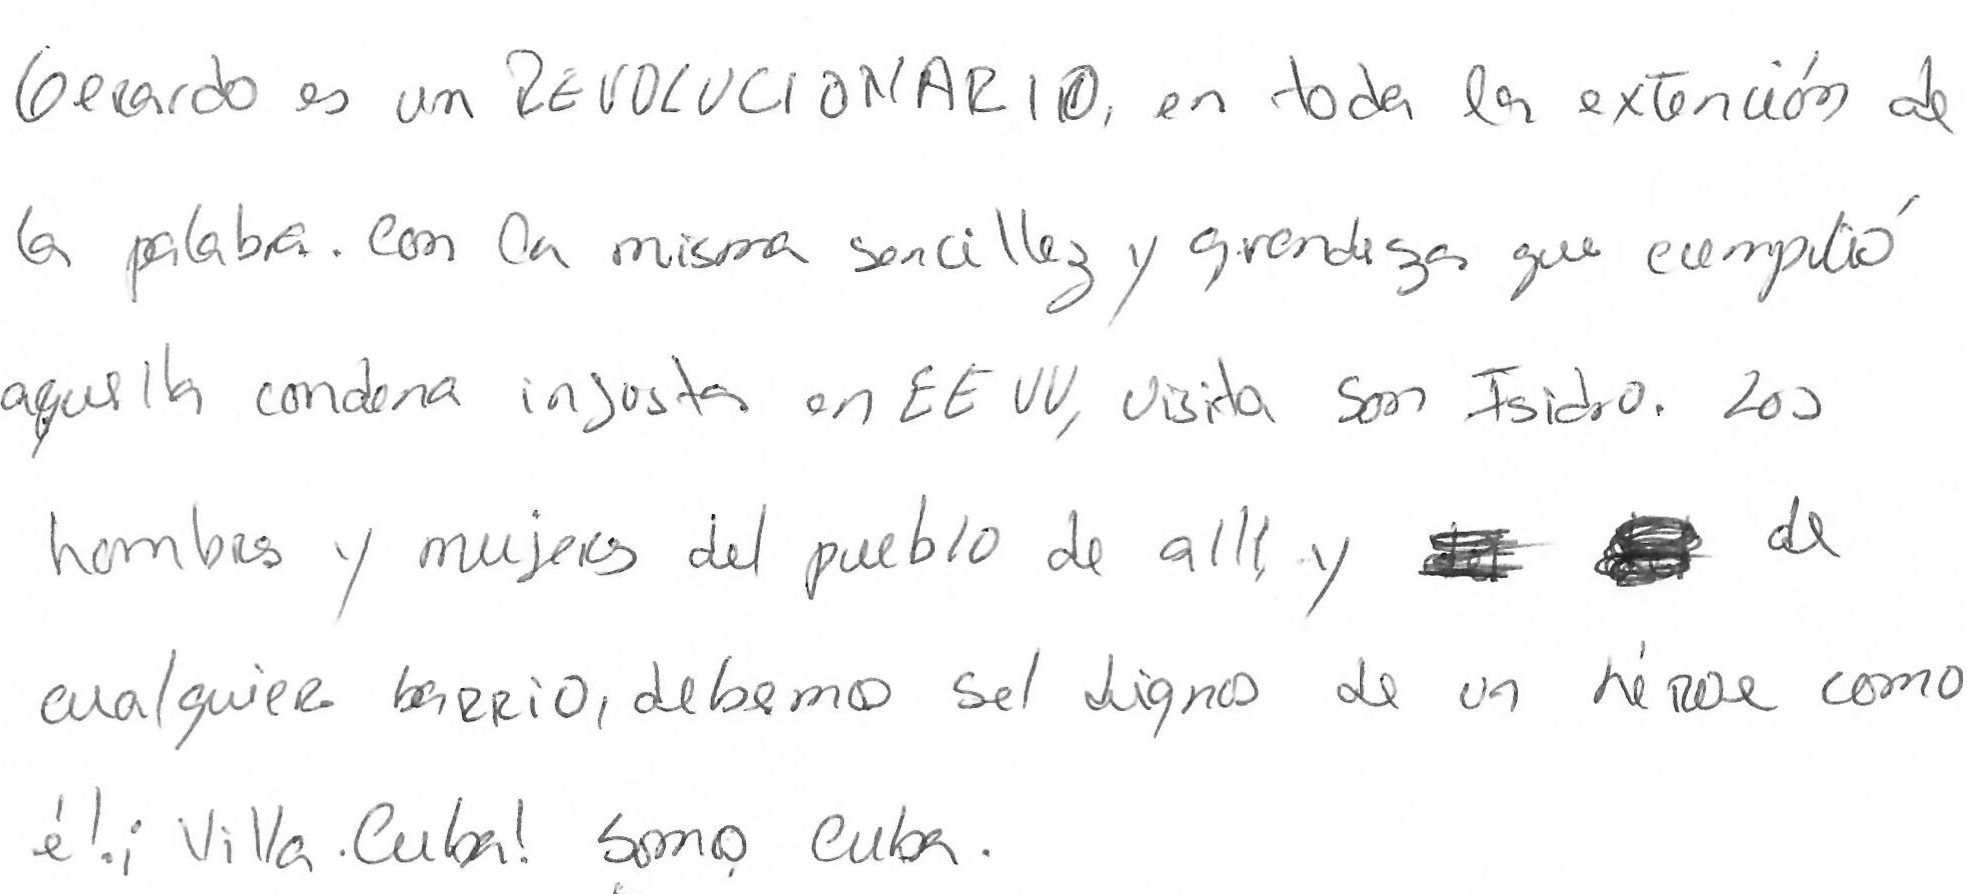 Gerardo es un REVOLUCIONARIO, en toda la extención de
la palabra. Con la misma sencillez y grandeza que cumplió
aquella condena injusta en EE UU, visita San Isidro. Los
hombres y mujeres del pueblo de allí y de
cualquier barrio, debemos sel dignos de un héroe como
él. ¡Viva Cuba! Somos Cuba.